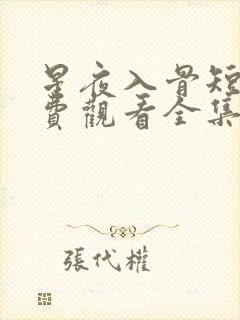 星夜入骨短
費觀看全集
張代權